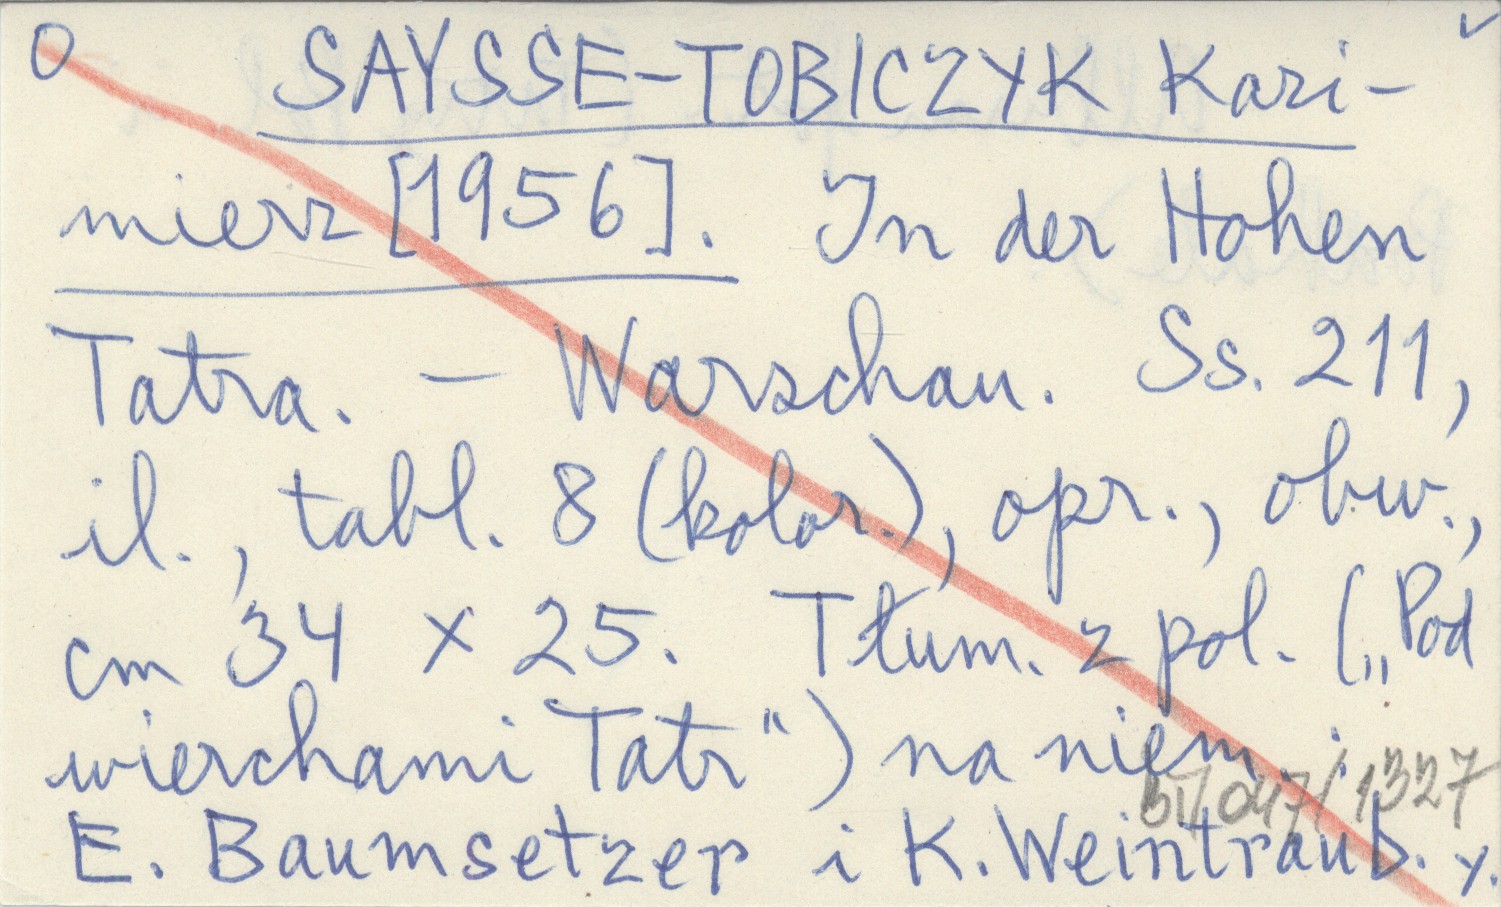 O SAYSSE-TOBICZYK Kazi-
mierz [1956]. In der Hohen
Tatra. - Warschau. Ss. 211,
il., tabl. 8 (kolor.), opr., obw.,
cm 34 x 25. Tłum. z pol. („Pod
wierchami Tatr") na niem.:
E. Baumsetzer i K. Weintraub. y.
047/1327